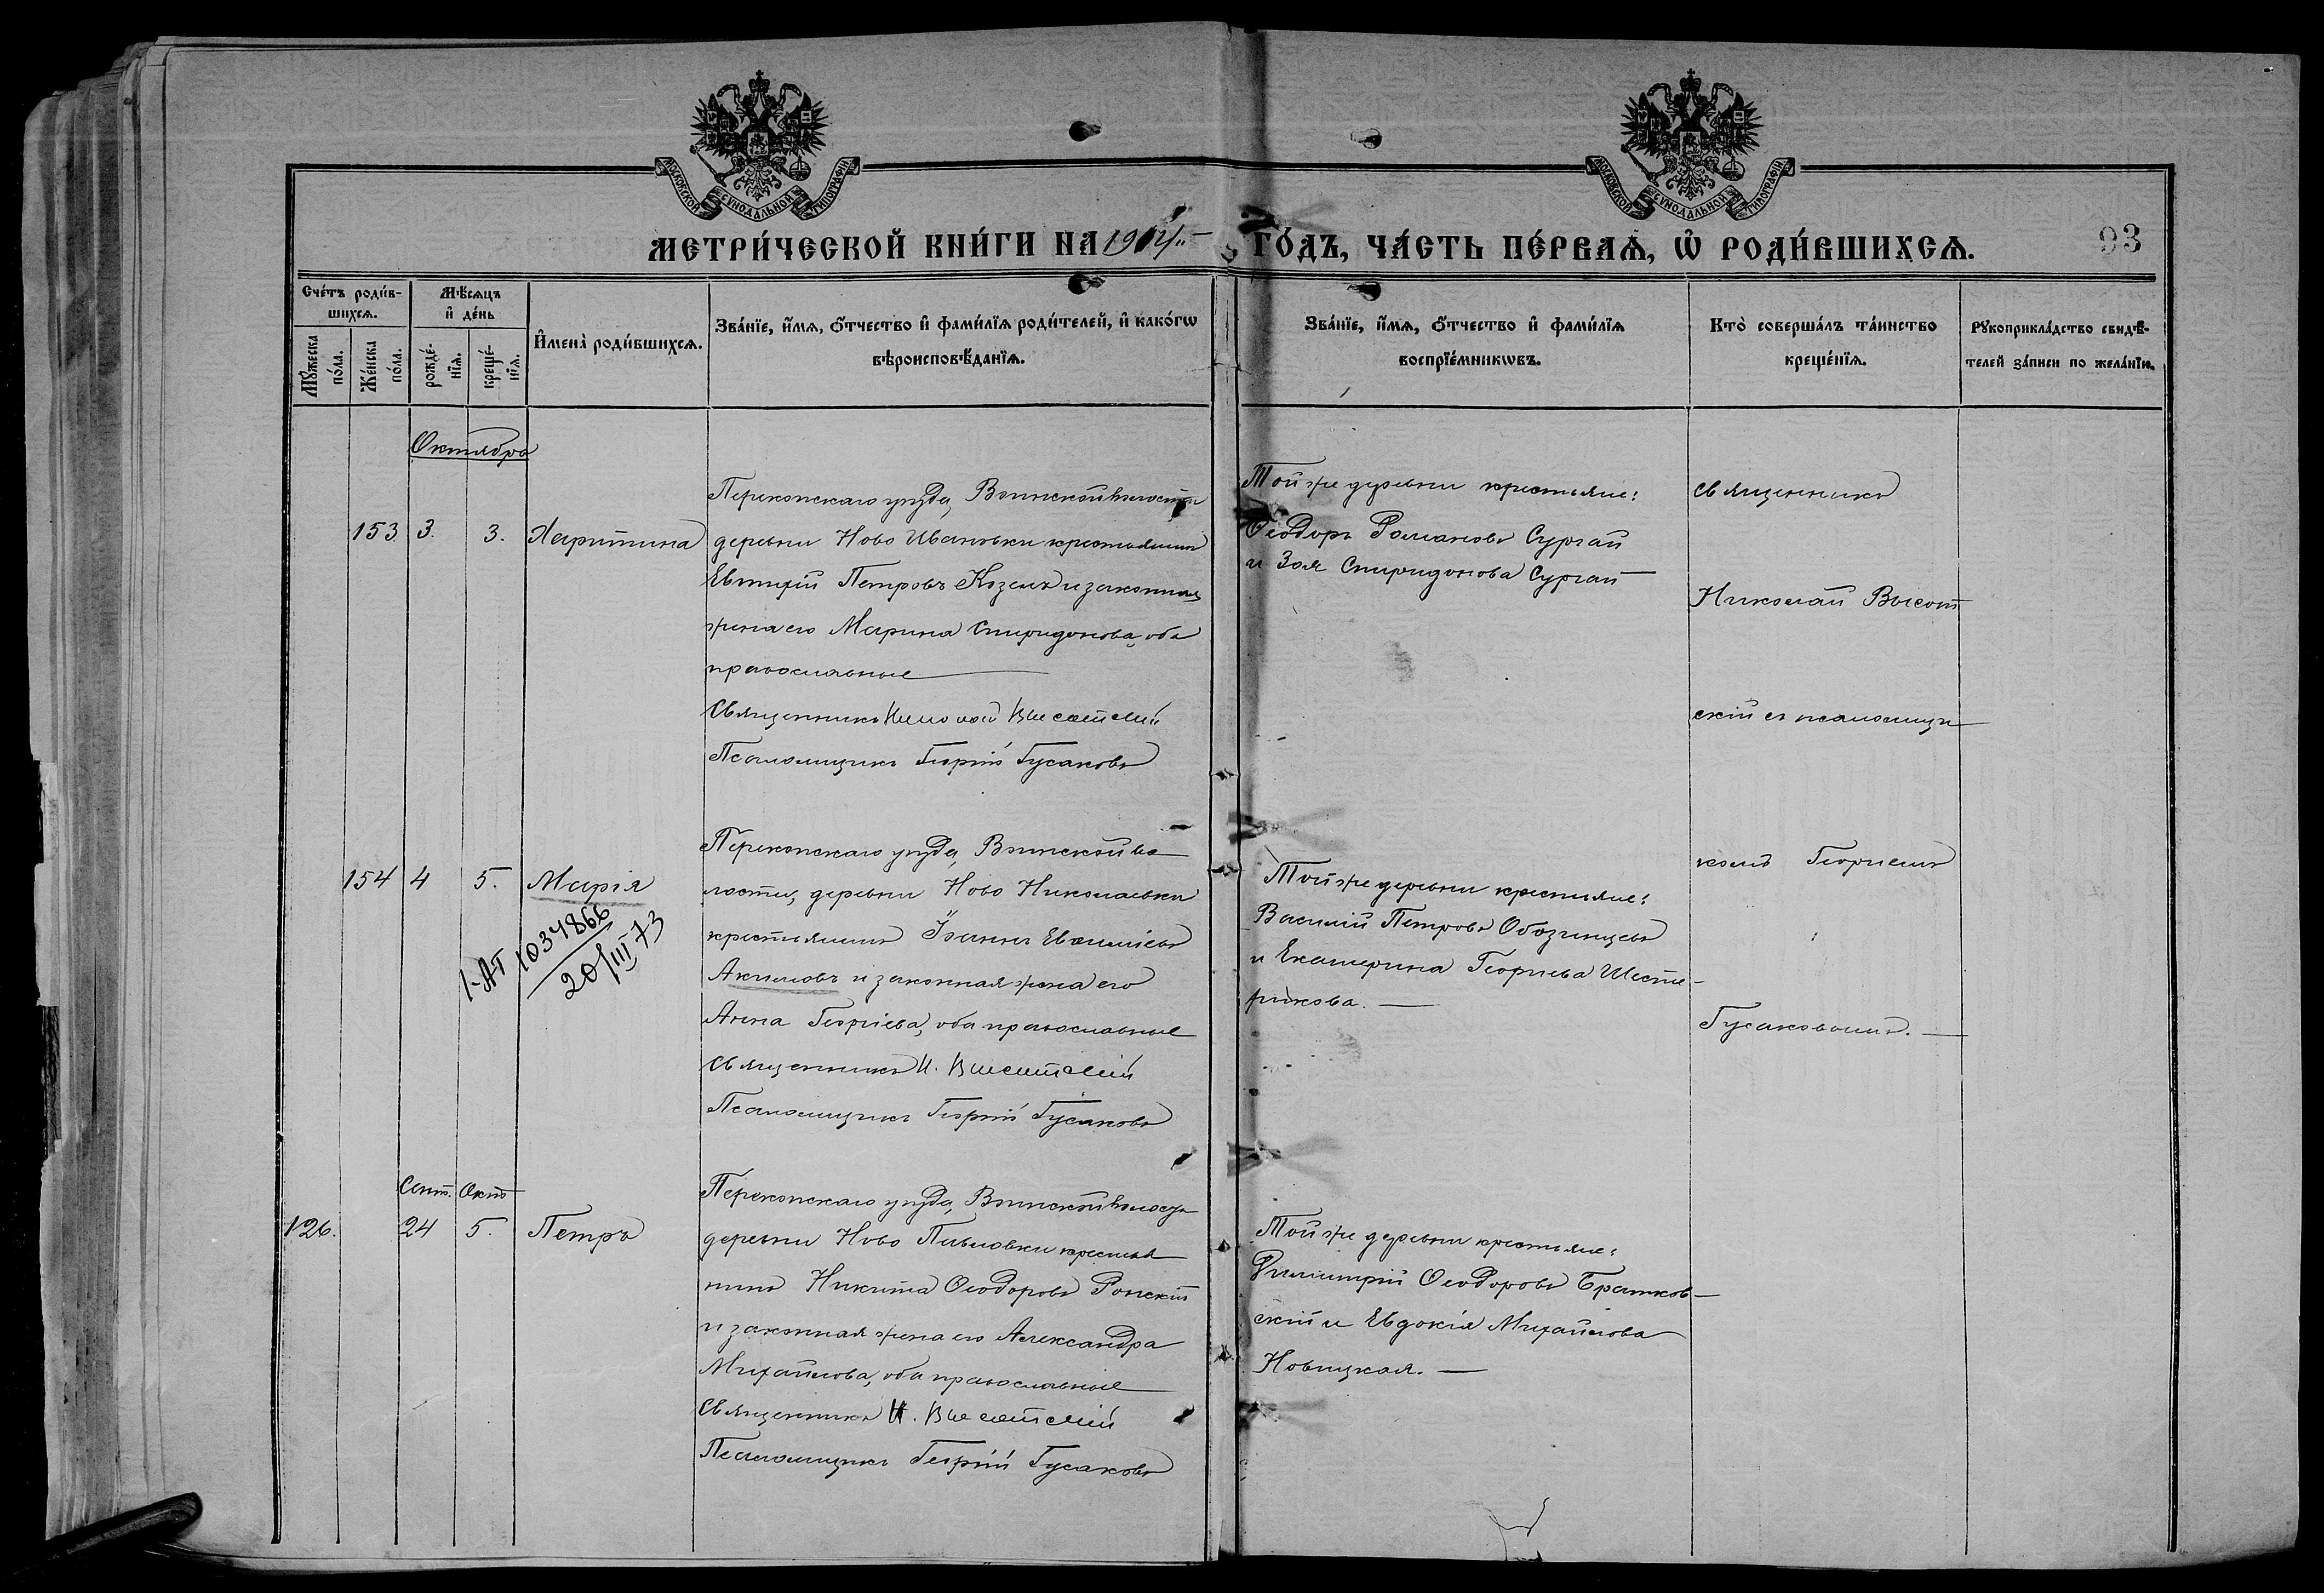 МОСКОВСКОЙ СѴНОДАЛЬНОЙ ТИПОГРАФІИ
МОСКОВСКОЙ СѴНОДАЛЬНОЙ ТИПОГРАФІИ
МЕТРИ́ЧЕСКОЙ КНИ́ГИ НА 1904 ГО́ДЪ, ЧА́СТЬ ПЕ́РВАѦ, Ѡ҆ РОДИ́ВШИХСѦ.
93
Сче́тъ роди́в-
шихсѧ.
Мꙋ́жеска по́ла.
Же́нска по́ла.
Мѣ́сѧцъ
и҆ де́нь
рожде́-
нїѧ.
креще́-
нїѧ.
И҆мена̀ роди́вшихсѧ.
Зва́нїе, и҆́мѧ, ѻ҆́тчество и҆ фами́лїѧ роди́телей, и҆ како́гѡ
вѣроисповѣ́данїѧ.
Зва́нїе, и҆́мѧ, ѻ҆́тчество и҆ фами́лїѧ
воспрїе́мникѡвъ.
Кто̀ соверша́лъ та́инство
креще́нїѧ.
Рꙋкоприкла́дство свидѣ́-
телей за́писи по жела́нїю.
Октября
153. 3. 3. Харитина
Перекопскаго уѣзда, Воинской волости
деревни Ново Ивановки крестьянинъ
Евтихій Петровъ Козелъ и законная
жена его Марина Спиридонова, оба
православные
Священникъ Николай Высотскій
Псаломщикъ Георгій Гусаковъ
Той же деревни крестьяне:
Ѳеодоръ Романовъ Сургай
и Зоя Спиридонова Сургай
Священникъ
Николай Высот
скій съ псаломщи
комъ Георгіемъ
Гусаковымъ.
154 4 5. Марія
1-АТ 1034866
20/III 73
Перекопскаго уѣзда, Воинской во
лости, деревни Ново Николаевки
крестьянинъ Іоаннъ Евѳиміевъ
Акимовъ и законная жена его
Анна Георгіева, оба православные
Священникъ Н. Высотскій
Псаломщикъ Георгій Гусаковъ
Той же деревни крестьяне:
Василій Петровъ Обозинцевъ
и Екатерина Георгіева Шесте-
рикова.
Сент. Окт
126. 24 5. Петръ
Перекопскаго уѣзда, Воинской волости
деревни Ново Павловки крестья
нинъ Никита Ѳеодоровъ Ронскій
и законная жена его Александра
Михайлова, оба православные
Священникъ Н. Высотскій
Псаломщикъ Георгій Гусаковъ
Той же деревни крестьяне:
Димитрій Ѳеодоровъ Братков-
скій и Евдокія Михайлова
Новицкая.